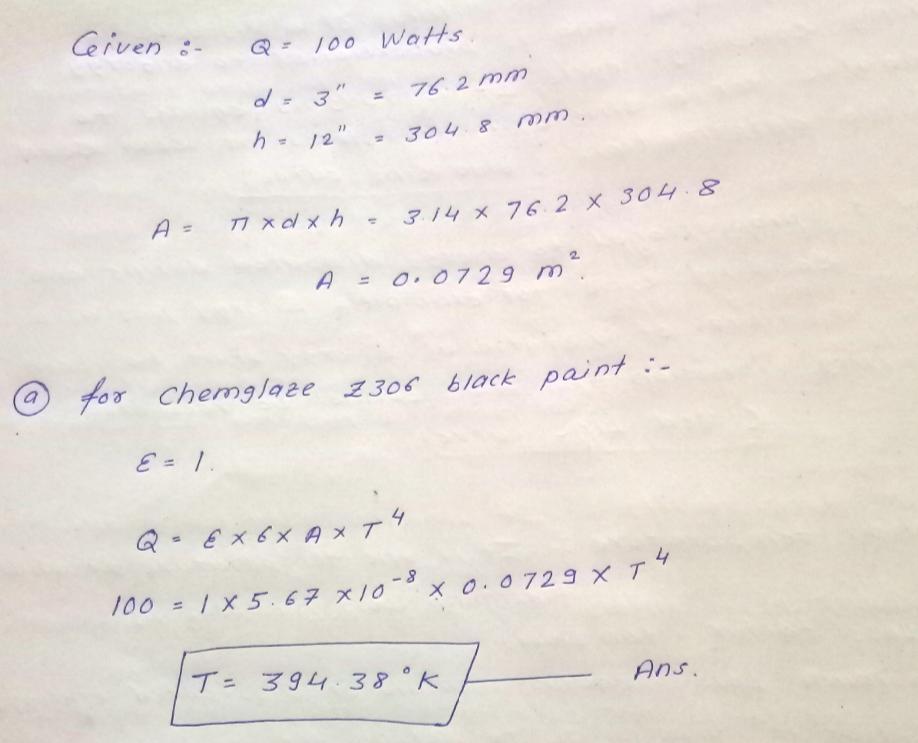 Given :- Q = 100 Watts.
d = 3" = 76.2 mm
h = 12" = 304.8 mm.
A = π x d x h = 3.14 x 76.2 x 304.8
A = 0.0729 m².
(a) for Chemglaze Z306 black paint :-
ε = 1.
Q = ε x σ x A x T⁴
100 = 1 x 5.67 x 10⁻⁸ x 0.0729 x T⁴
T = 394.38 °K Ans.